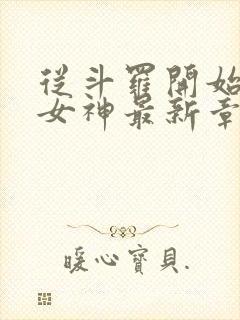 從斗羅開始
女神最新章
暖心寶貝.